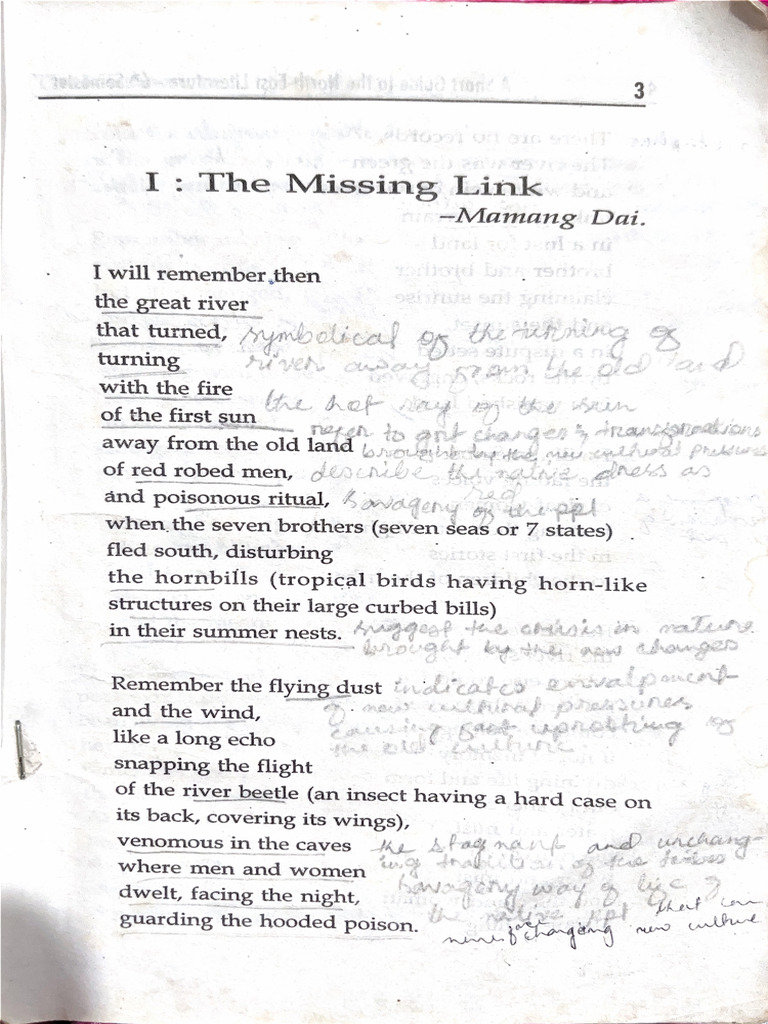 3
I : The Missing Link
–Mamang Dai.
I will remember then
the great river
that turned, symbolical of the turning of
turning river away from the old and
with the fire the hot ray of the sun
of the first sun refer to grt changes & transformations
away from the old land brought by the new cultural pressures
of red robed men, describe the native dress as
red
and poisonous ritual, savagery of the ppl
when the seven brothers (seven seas or 7 states)
fled south, disturbing
the hornbills (tropical birds having horn-like
structures on their large curbed bills)
in their summer nests. suggest the crisis in nature
brought by the new changes
Remember the flying dust indicates
and the wind, of new cultural pressures
like a long echo causing uprooting of
the old culture
snapping the flight
of the river beetle (an insect having a hard case on
its back, covering its wings),
venomous in the caves the stagnant and unchang-
where men and women ing tradition of the tribes
dwelt, facing the night, savagery way of life of
guarding the hooded poison. the native ppl that can
never changing new culture